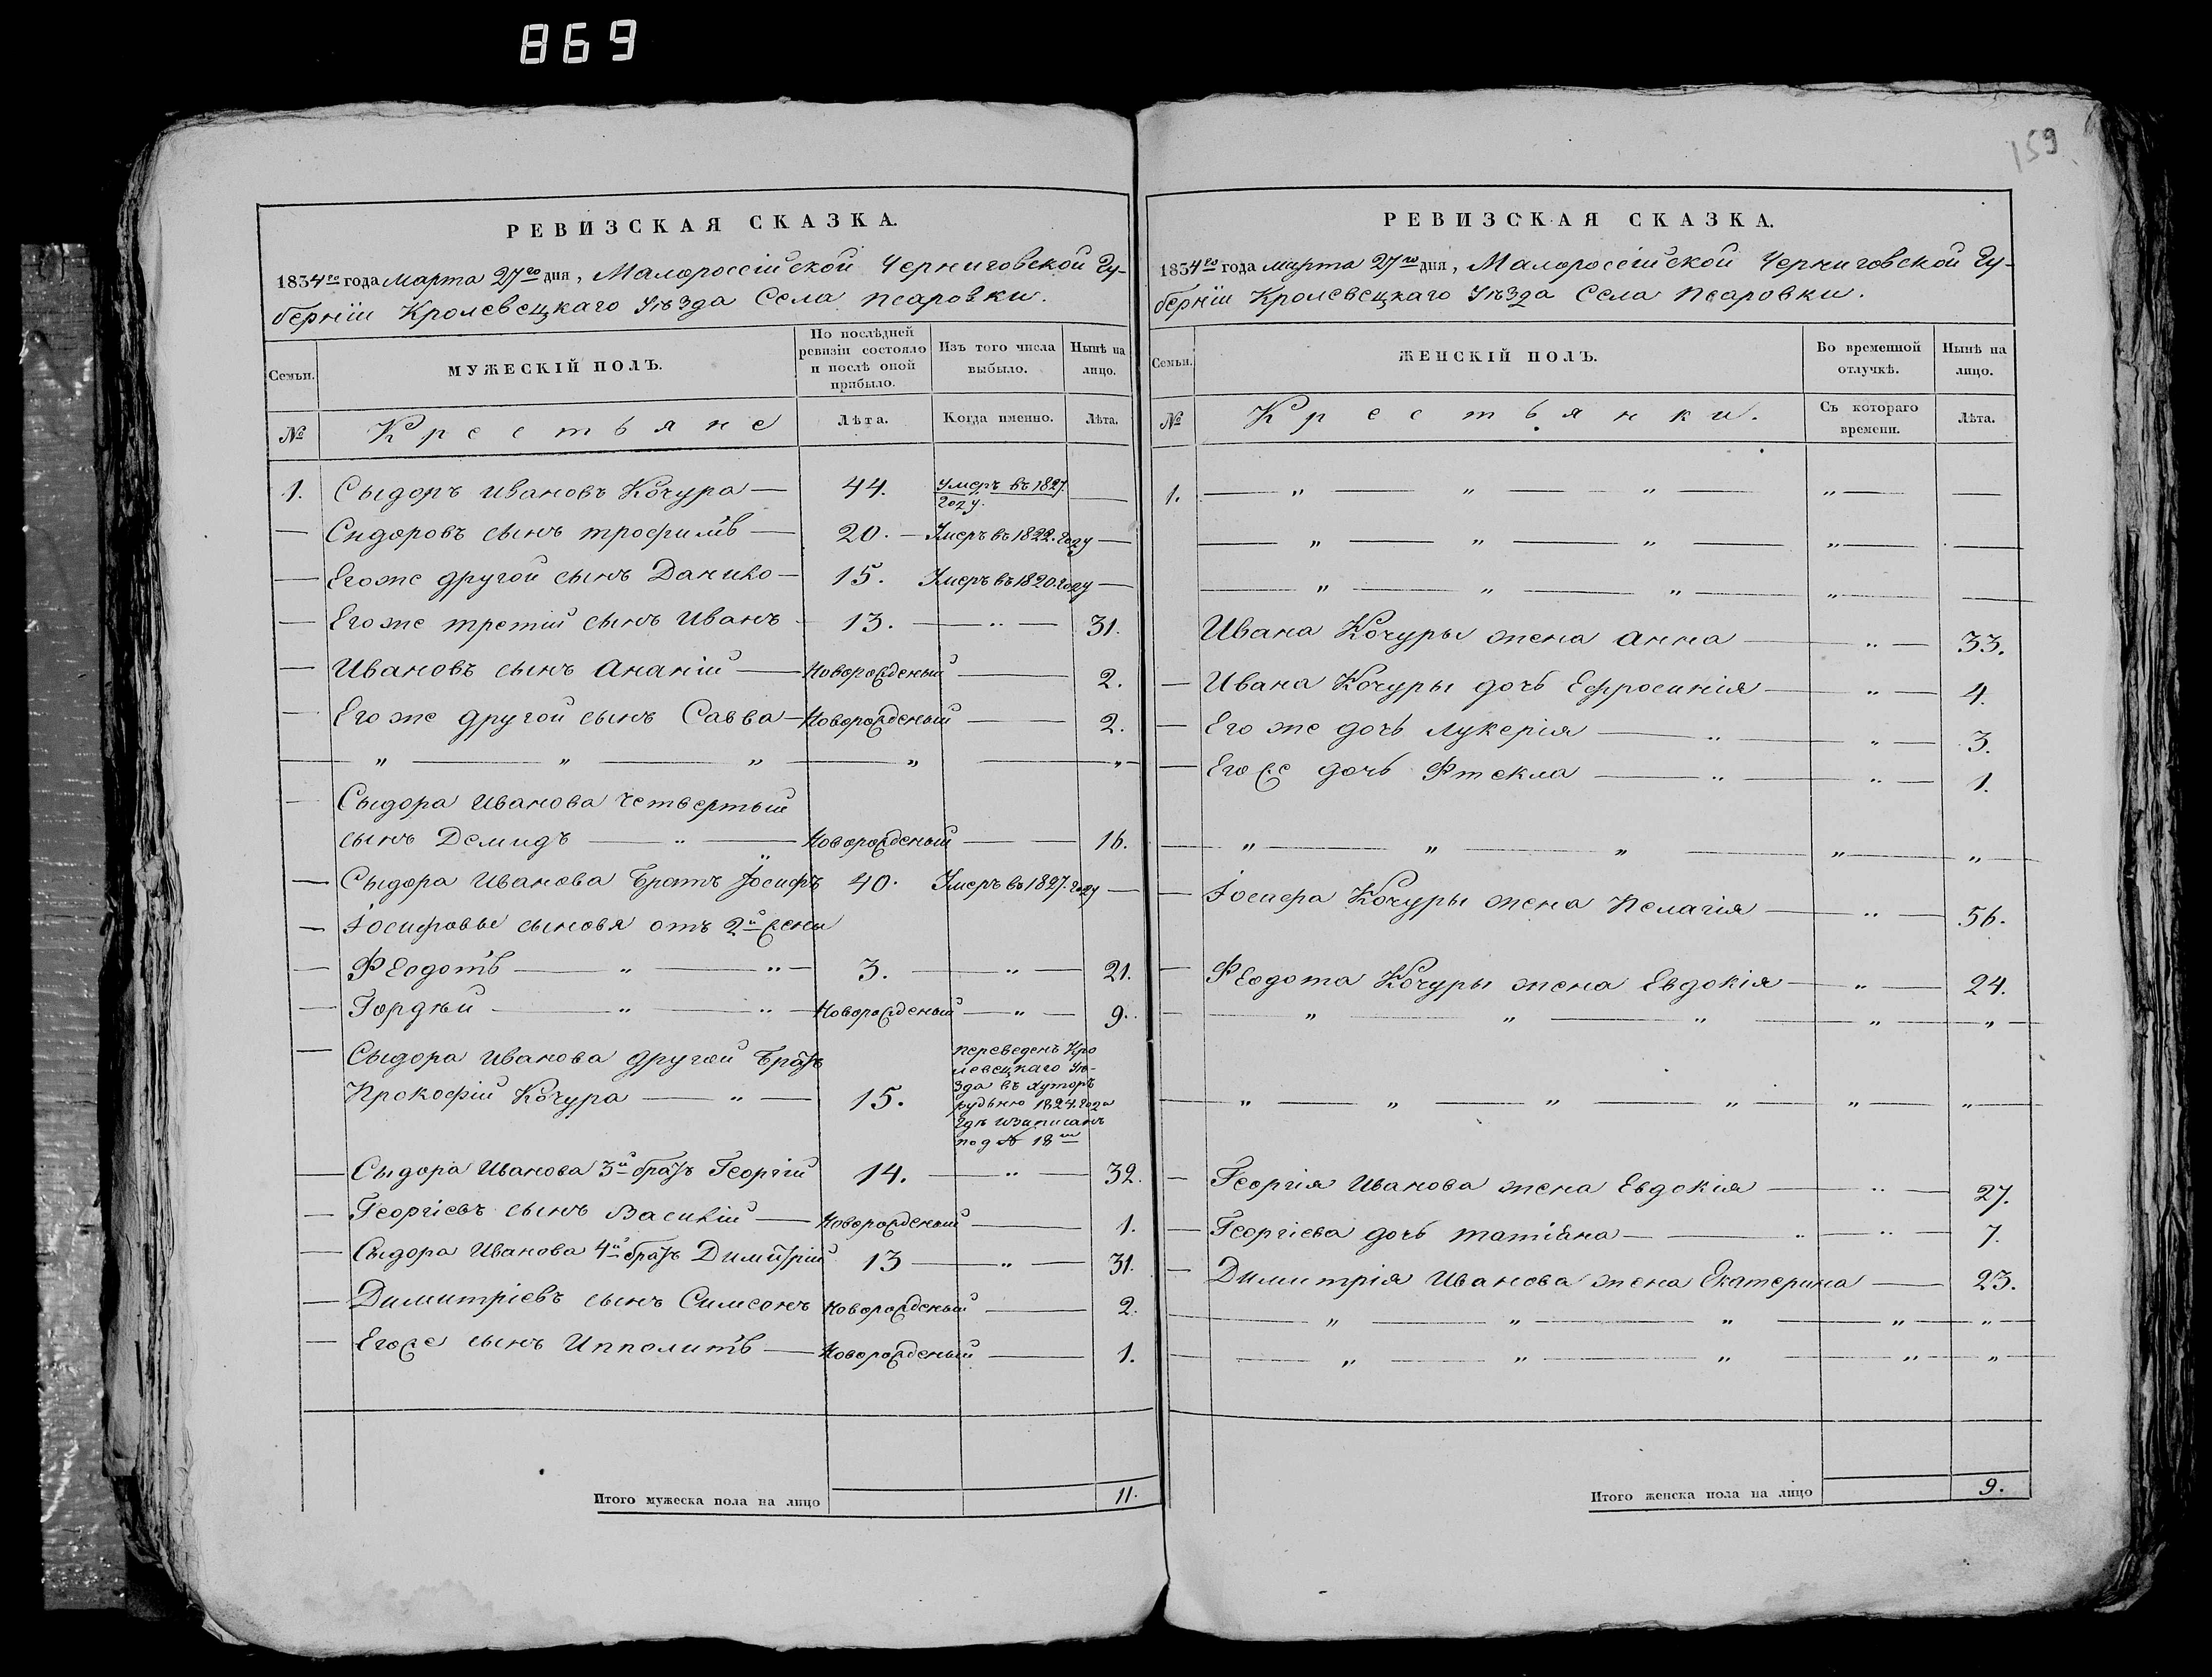 869
159
РЕВИЗСКАЯ СКАЗКА.
1834го года Марта 27го дня, Малороссійской Черниговской Гу-
берніи Кролевецкаго Уѣзда Села Псаровки.
Семьи.
МУЖЕСКІЙ ПОЛЪ.
По послѣдней ревизіи состояло и послѣ оной прибыло.
Изъ того числа выбыло.
Нынѣ на лицо.
№ Крестьяне Лѣта. Когда именно. Лѣта.
1. Сыдоръ Ивановъ Кочура — 44. Умеръ въ 1827. году. —
— Сидоровъ сынъ Трофимъ — 20. — Умеръ въ 1822. году —
— Егоже другой сынъ Данило — 15. Умеръ въ 1820. году —
— Егоже третій сынъ Иванъ 13. — „ — 31.
— Ивановъ сынъ Ананій — Новорожденый — 2.
— Его же другой сынъ Савва — Новорожденый — 2.
— „ — „ — „ — „ — „
— Сыдора Иванова четвертый
сынъ Демидъ — „ — Новорожденый — 16.
— Сыдора Иванова Братъ Іосифъ 40. Умеръ въ 1827. году —
— Іосифовы сыновья отъ 2й жены
— Феодотъ — „ — „ — 3. — „ — 21.
— Гордѣй — „ — „ — Новорожденый — „ — 9.
— Сыдора Иванова другой Братъ
Прокофій Кочура — „ — 15. переведенъ Кро
левецкаго Уѣ-
зда въ хуторъ
рудьню 1824. года
гдѣ и записанъ
под № 18м
— Сыдора Иванова 3й братъ Георгій 14. — „ — 32.
— Георгіевъ сынъ Василій — Новорожденый — 1.
— Сыдора Иванова 4й братъ Димитрій 13 — „ — 31.
— Димитріевъ сынъ Симеонъ Новорожденый — 2.
— Егоже сынъ Ипполитъ — Новорожденый — 1.
Итого мужеска пола на лицо 11.
РЕВИЗСКАЯ СКАЗКА.
1834го года Марта 27го дня, Малороссійской Черниговской Гу-
берніи Кролевецкаго Уѣзда Села Псаровки.
Семьи.
ЖЕНСКІЙ ПОЛЪ.
Во временной отлучкѣ.
Нынѣ на лицо.
№ Крестьянки. Съ котораго времени. Лѣта.
1. — „ — „ — „ — „ — —
— „ — „ — „ — „ — —
— „ — „ — „ — „ — —
Ивана Кочуры жена Анна — „ — 33.
— Ивана Кочуры дочь Ефросинія — „ — 4.
— Его же дочь Лукерія — „ — „ — 3.
— Егоже дочь Фтекла — „ — „ — 1.
— „ — „ — „ — „ — „
— Іосифа Кочуры жена Пелагія — „ — 56.
— Феодота Кочуры жена Евдокія — „ — 24.
— „ — „ — „ — „ — „
— „ — „ — „ — „ — „ — „
— Георгія Иванова жена Евдокія — „ — 27.
— Георгіева дочь Татіана — „ — „ — 7.
— Димитрія Иванова жена Екатерина — 23.
— „ — „ — „ — „ — „
— „ — „ — „ — „ — „
Итого женска пола на лицо 9.